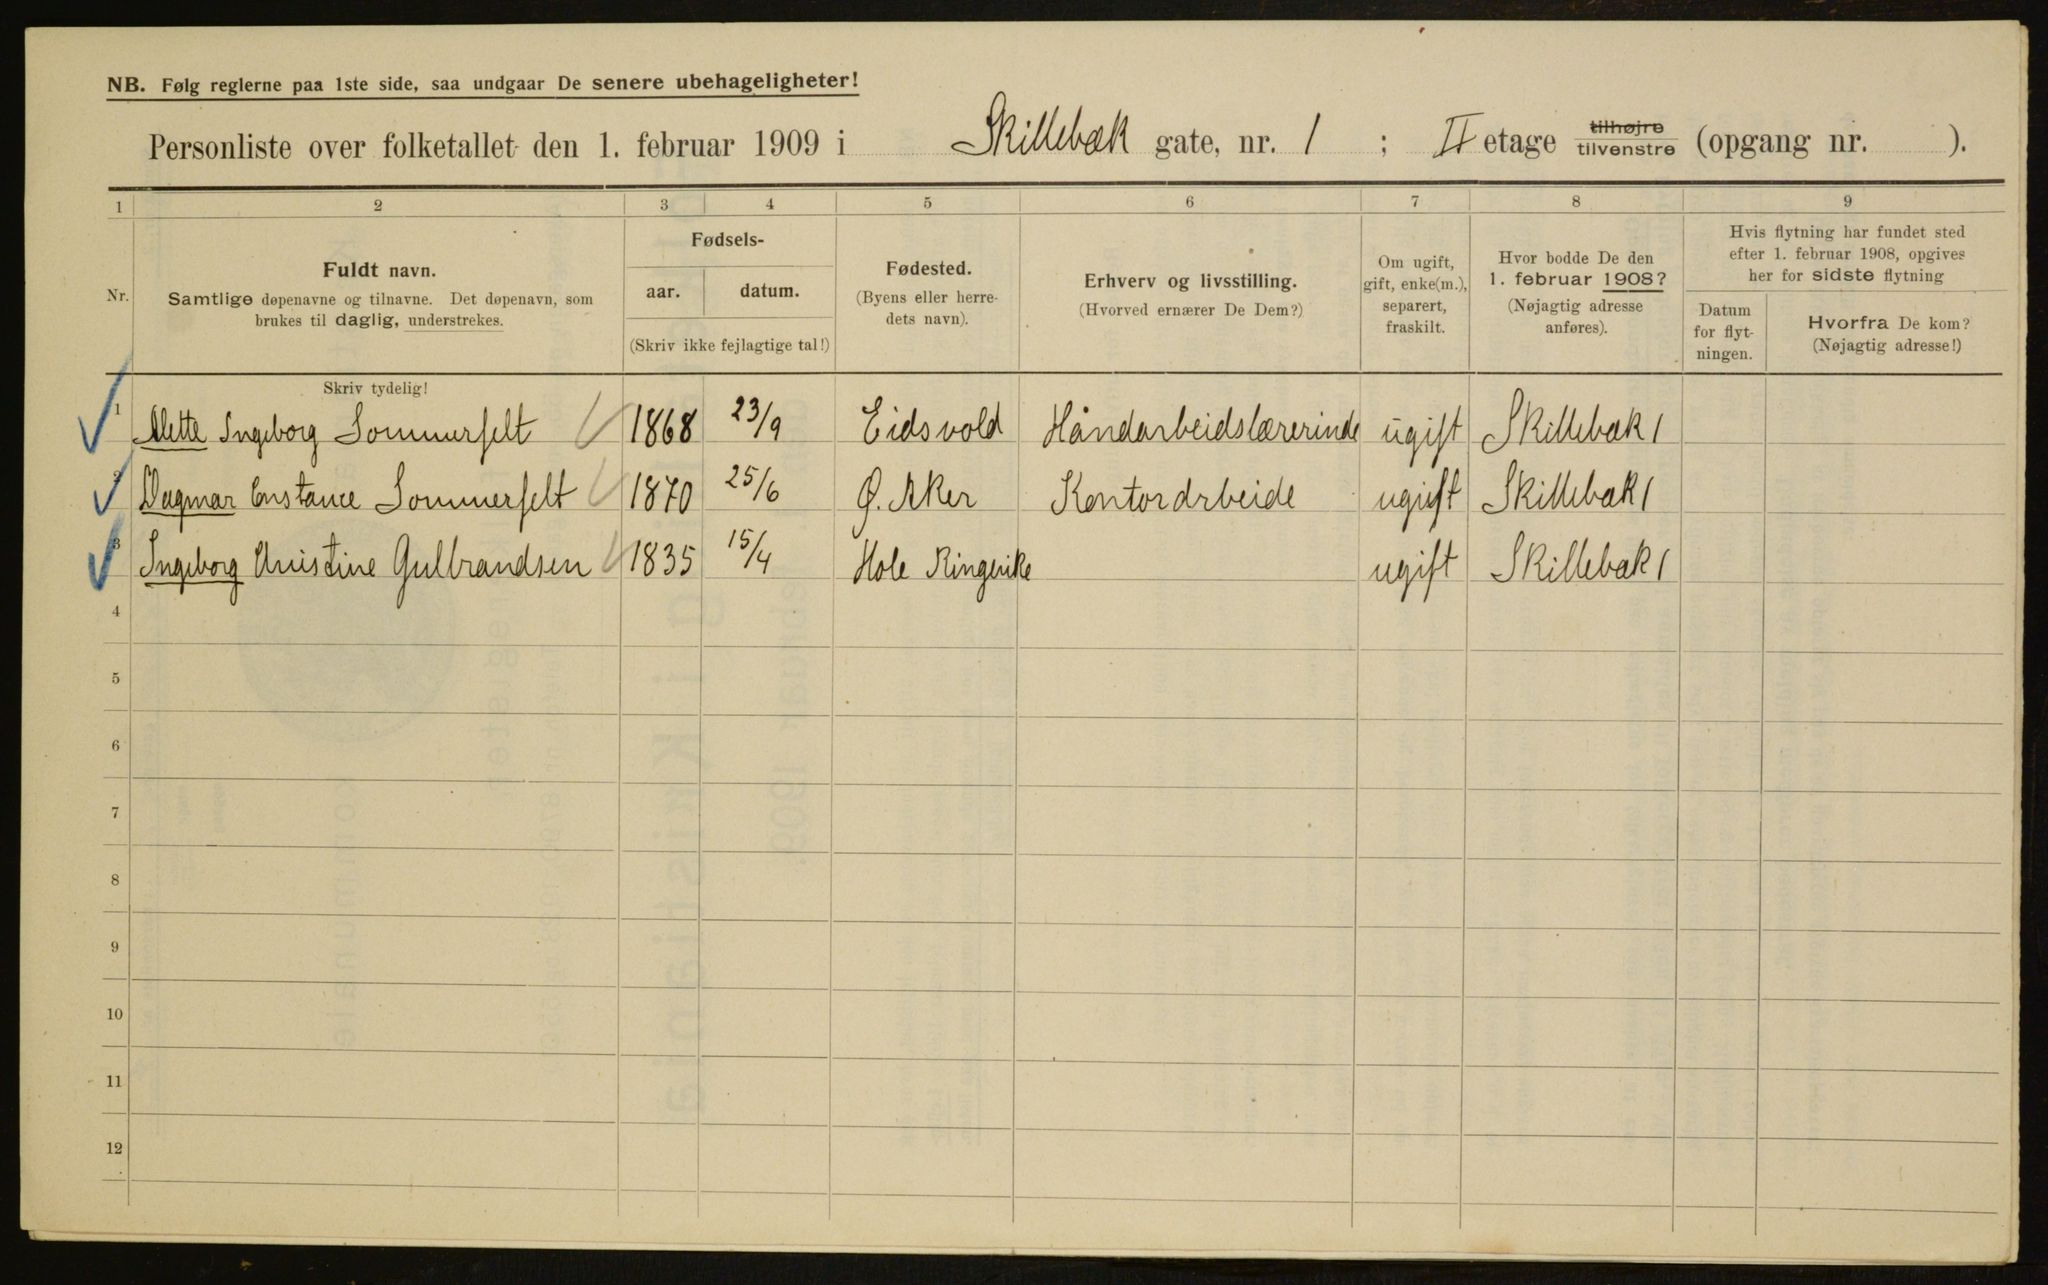 NB. Følg reglerne paa 1ste side, saa undgaar De senere ubehageligheter!
Personliste over folketallet den 1. februar 1909 i Skillebæk gate, nr. 1 ; II etage tilhøjre tilvenstre (opgang nr. ).
1 2 3 4 5 6 7 8 9
Nr.
Fuldt navn.
Samtlige døpenavne og tilnavne. Det døpenavn, som
brukes til daglig, understrekes.
Fødsels-
aar. datum.
(Skriv ikke fejlagtige tal!)
Fødested.
(Byens eller herre-
dets navn).
Erhverv og livsstilling.
(Hvorved ernærer De Dem?)
Om ugift,
gift, enke(m.),
separert,
fraskilt.
Hvor bodde De den
1. februar 1908?
(Nøjagtig adresse
anføres).
Hvis flytning har fundet sted
efter 1. februar 1908, opgives
her for sidste flytning
Datum
for flyt-
ningen.
Hvorfra De kom?
(Nøjagtig adresse!)
Skriv tydelig!
1 Alette Ingeborg Sommerfelt 1868 23/9 Eidsvold Håndarbeidslærerinde ugift Skillebæk 1
2 Dagmar Constance Sommerfelt 1870 25/6 Ø. Aker Kontorarbeide ugift Skillebæk 1
3 Ingeborg Christine Gulbrandsen 1835 15/4 Hole Ringerike ugift Skillebæk 1
4
5
6
7
8
9
10
11
12